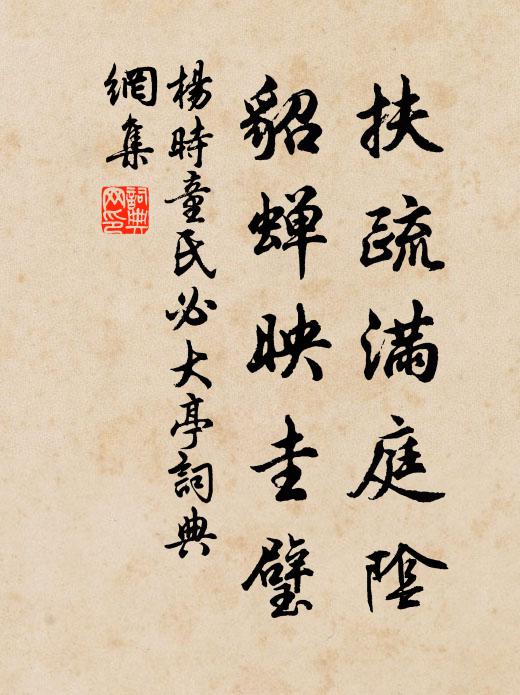 扶疏滿庭陰
貂蟬映圭璧
楊時童氏必大亭詞典
網集
詞典網印